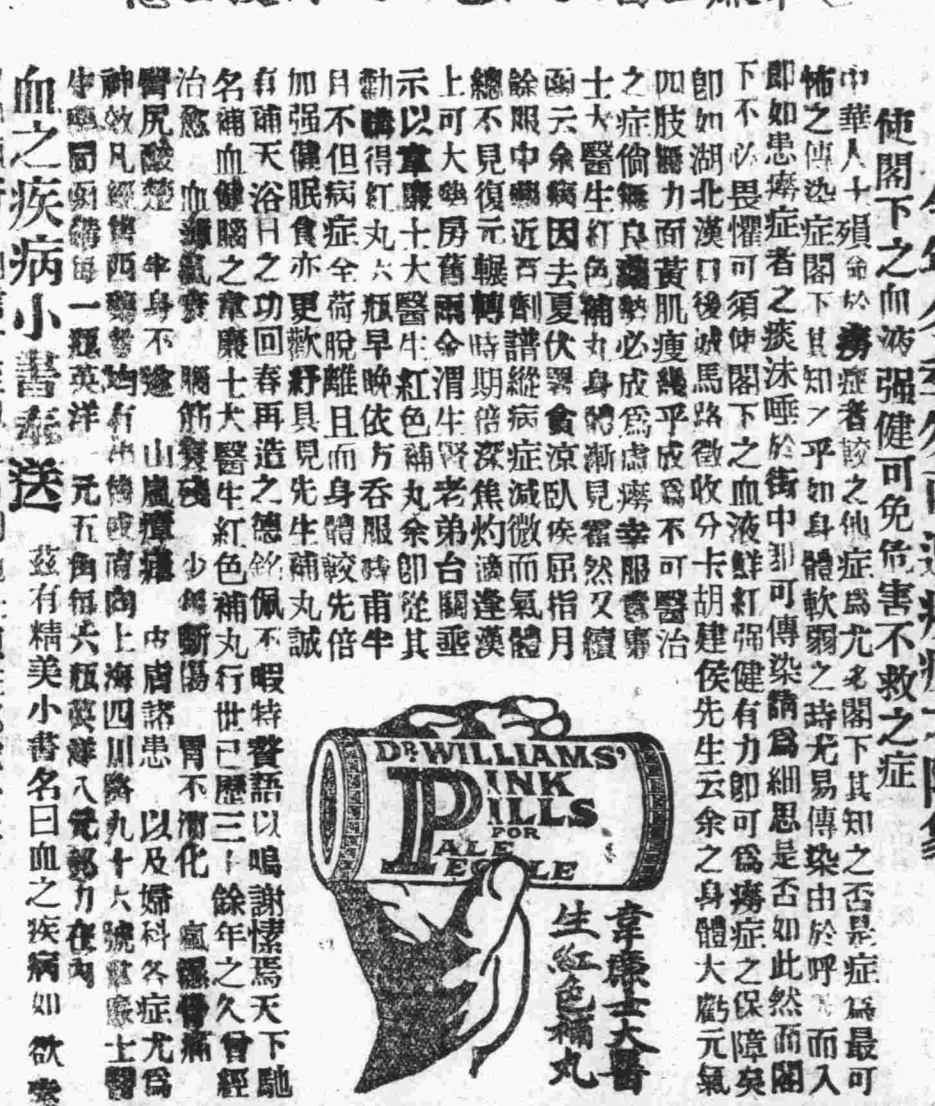 使閣下之血液强健可免危害不救之症
中華人士殞命於癆症者較之他症爲尤多閣下其知之否是症爲最可
怖之傳染症閣下其知之乎如身體軟弱之時尤易傳染由於呼而入
即如患癆症者之痰沫唾於街中即可傳染請爲細思是否如此然而閣
下不必畏懼可須使閣下之血液鮮紅强健有力即可爲癆症之保障矣
即如湖北漢口後城馬路徵收分卡胡建侯先生云余之身體大虧元氣
四肢無力面黃肌瘦幾乎成爲不可醫治
之症倘無良藥勢必成爲虛癆幸服韋廉
士大醫生紅色補丸身體漸見霍然又續
函云余病因去夏伏暑食涼臥疾屈指月
餘服中藥近百劑譜縱病症減微而氣體
總不見復元輾轉時期倍深焦灼適逢漢
上可大藥房舊雨余渭生賢老弟台關垂
示以韋廉士大醫生紅色補丸余即從其
勸購得紅丸六瓶早晚依方吞服時甫半
月不但病症全荷脫離且而身體較先倍
加强健眠食亦更歡紓具見先生補丸誠
有補天浴日之功回春再造之德銘佩不暇特贅語以鳴謝悃焉天下馳
名補血健腦之韋廉士大醫生紅色補丸行世已歷三十餘年之久曾經
治愈 血薄氣衰 腦筋衰殘 少年斷傷 胃不消化 瘋濕骨痛
臀尻酸楚 半身不遂 山嵐瘴瘧 皮膚諸患 以及婦科各症尤爲
神效凡經售西藥者均有出售或直向上海四川路九十六號韋廉士醫
生藥局函購每一瓶英洋一元五角每六瓶英洋八元郵力在內
血之疾病小書奉送 茲有精美小書名曰血之疾病如欲索
DR. WILLIAMS'
PINK
PILLS
FOR
PALE
PEOPLE
韋廉士大醫
生紅色補丸